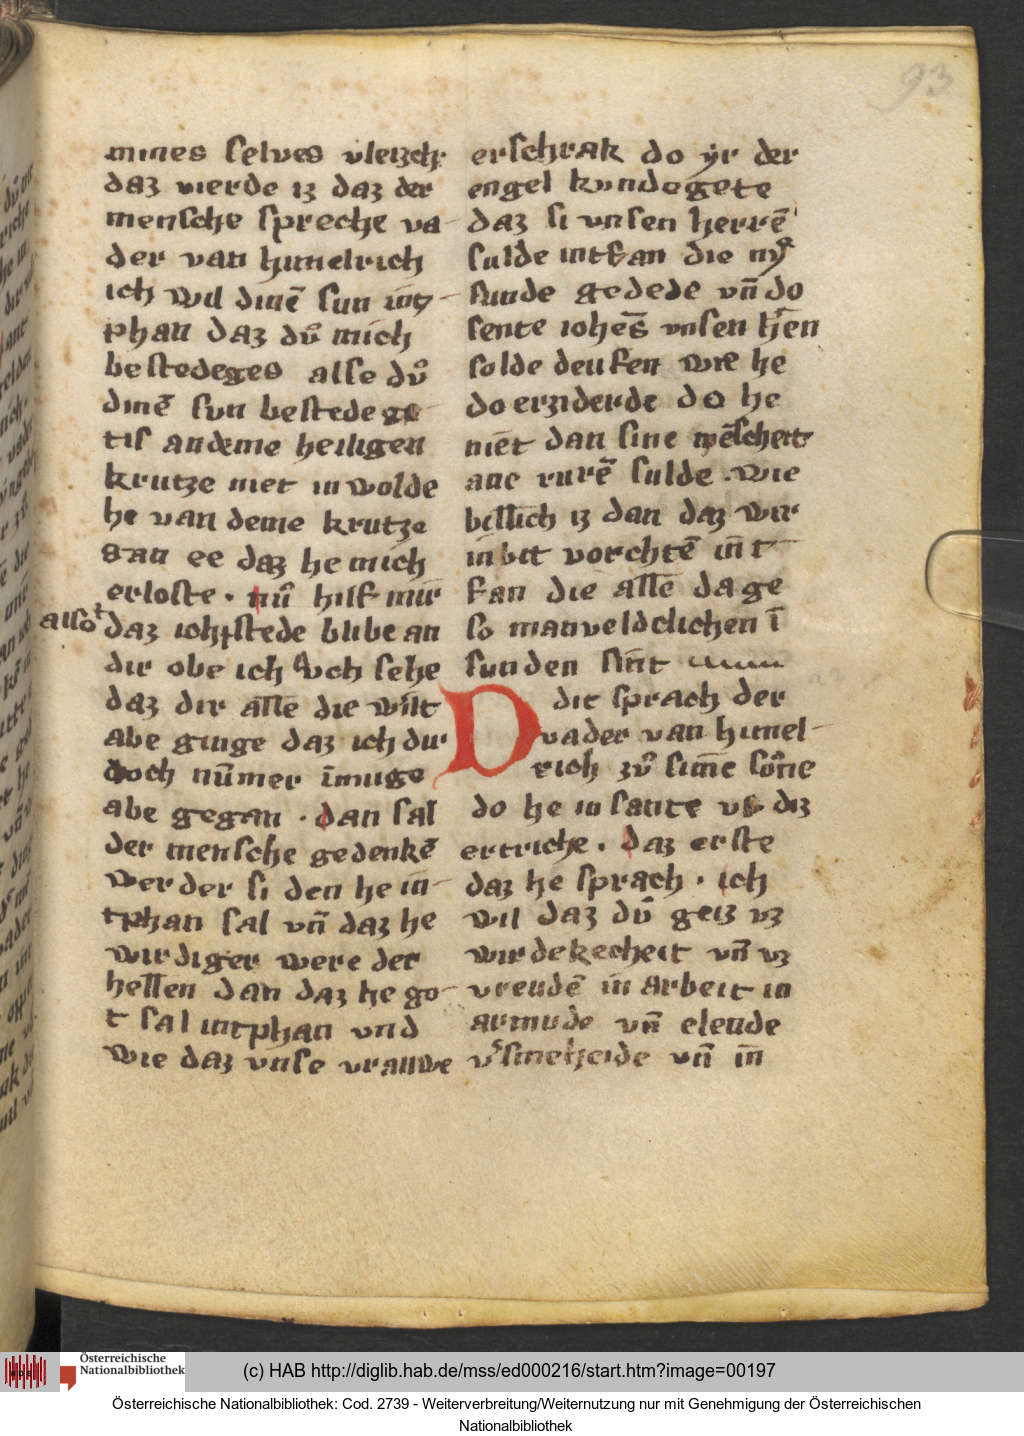 93
mines selues vleizch
daz werde iz daz der
mensche spreche va-
der van himelrich
ich wil dinē sun int-
phan daz dů mich
bestedeges alse dů
dinē sun bestedege-
tis an deme heiligen
krutze niet in wolde
he van deme krutze
gan ee daz he mich
erloste · nů hilf mir
also
daz ich stede blibe an
dir obe ich och sehe
daz dir alle die wilt
abe ginge daz ich dur
doch nūmer īmuge
abe gegan · dan sal
der mensche gedenkē
wer der si den he in-
tphan sal vn̄ daz he
wirdiger were der
hellen dan daz he go-
t sal intphan vnd
wie daz vnse vrauwe
erschrak do yr der
engel kundegete
daz si vnsen herrē
sulde intfan die ny
sunde gedede vn̄ do
sente iohēs vnsen hēn
solde deufen wie he
do erziderde do he
niet dan sine mēscheit
ane rurē sulde · wie
billich iz dan daz wir
in bit vorchtē in t-
fan die alle dage
so manveldclichen ī
sunden sint
dit sprach der
Dvader van himel-
rich zů sime sone
do he in sante vf diz
ertriche · daz erste
daz he sprach · ich
wil daz dů geiz vz
wirdekecheit vn̄ vz
vreudē in arbeit in
armude vn̄ elende
vsmeheide vn̄ in
(c) HAB http://diglib.hab.de/mss/ed000216/start.htm?image=00197
Österreichische
Nationalbibliothek
Österreichische Nationalbibliothek: Cod. 2739 - Weiterverbreitung/Weiternutzung nur mit Genehmigung der Österreichischen
Nationalbibliothek